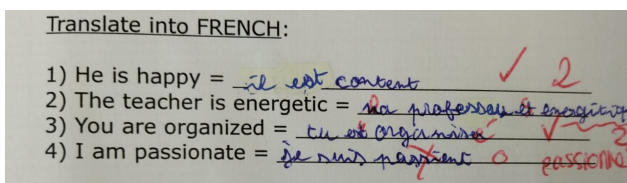 Translate into FRENCH:
1) He is happy = il est content ✓ 2
2) The teacher is energetic = professeu et
3) You are organized = tu es organisé ✓ 2
4) I am passionate = je suis passient 0 PASSIONNÉ